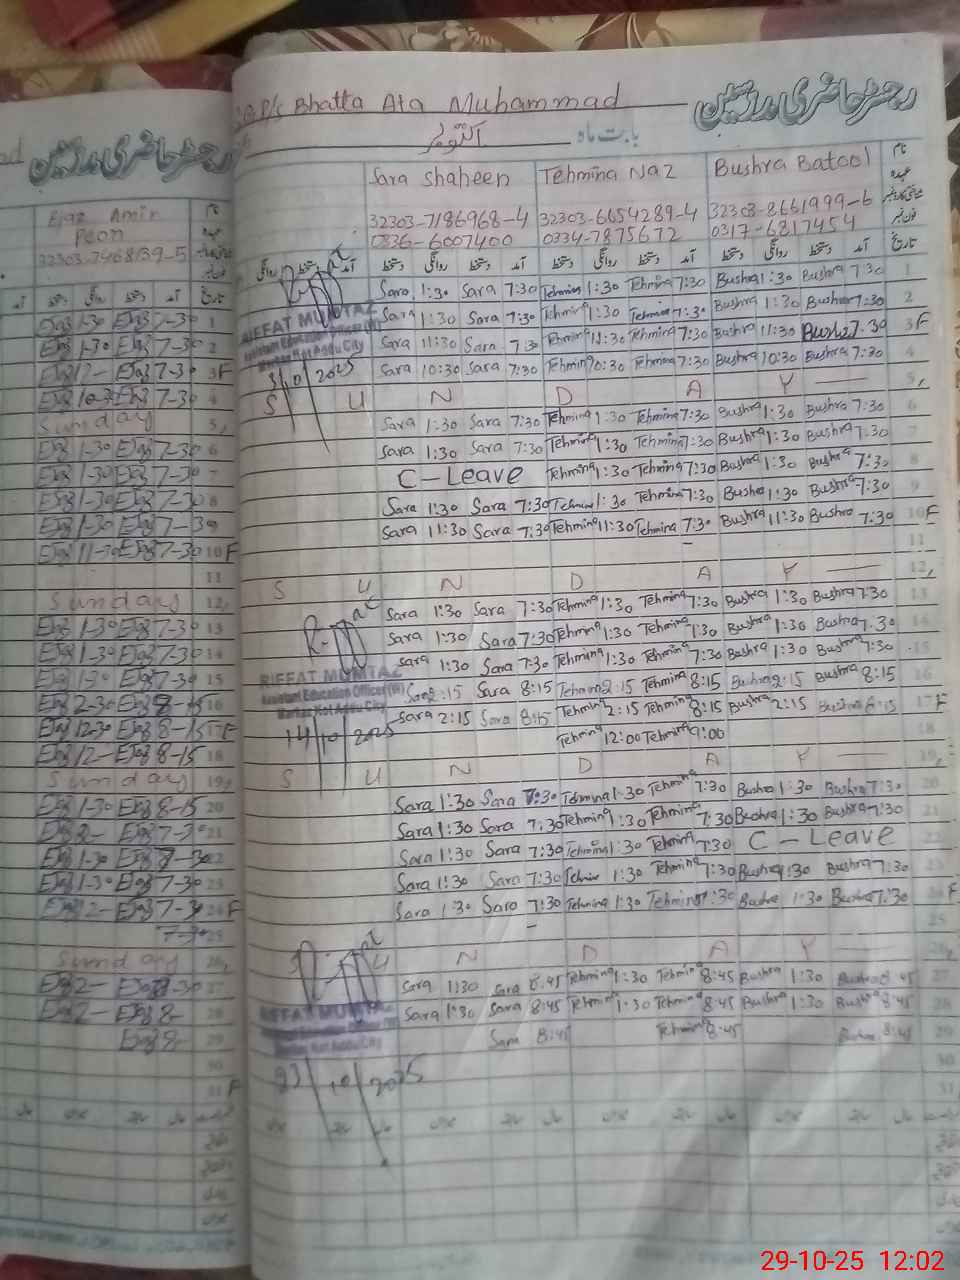 G.P/S Bhatta Ata Muhammad رجسٹر حاضری مدرسین
بابت ماہ اکتوبر
Sara Shaheen Tehmina Naz Bushra Batool نام
عہدہ
32303-7186968-4 32303-6654289-4 32303-8661999-6
0336-6007400 0334-7875672 0317-6817454 فون نمبر
روانگی دستخط آمد دستخط روانگی دستخط آمد دستخط روانگی دستخط آمد تاریخ
Sara 1:30 Sara 7:30 Tehmina 1:30 Tehmina 7:30 Bushra 1:30 Bushra 7:30 1
Sara 1:30 Sara 7:30 Tehmina 1:30 Tehmina 7:30 Bushra 1:30 Bushra 7:30 2
Sara 11:30 Sara 7:30 Tehmina 11:30 Tehmina 7:30 Bushra 11:30 Bushra 7:30 3 F
Sara 10:30 Sara 7:30 Tehmina 10:30 Tehmina 7:30 Bushra 10:30 Bushra 7:30 4
S U N D A Y 5
Sara 1:30 Sara 7:30 Tehmina 1:30 Tehmina 7:30 Bushra 1:30 Bushra 7:30 6
Sara 1:30 Sara 7:30 Tehmina 1:30 Tehmina 7:30 Bushra 1:30 Bushra 7:30 7
C-Leave Tehmina 1:30 Tehmina 7:30 Bushra 1:30 Bushra 7:30 8
Sara 1:30 Sara 7:30 Tehmina 1:30 Tehmina 7:30 Bushra 1:30 Bushra 7:30 9
Sara 11:30 Sara 7:30 Tehmina 11:30 Tehmina 7:30 Bushra 11:30 Bushra 7:30 10 F
11
S U N D A Y 12
Sara 1:30 Sara 7:30 Tehmina 1:30 Tehmina 7:30 Bushra 1:30 Bushra 7:30 13
Sara 1:30 Sara 7:30 Tehmina 1:30 Tehmina 7:30 Bushra 1:30 Bushra 7:30 14
Sara 1:30 Sara 7:30 Tehmina 1:30 Tehmina 7:30 Bushra 1:30 Bushra 7:30 15
Sara 2:15 Sara 8:15 Tehmina 2:15 Tehmina 8:15 Bushra 2:15 Bushra 8:15 16
Sara 2:15 Sara 8:15 Tehmina 2:15 Tehmina 8:15 Bushra 2:15 Bushra 8:15 17 F
Tehmina 12:00 Tehmina 9:00 18
S U N D A Y 19
Sara 1:30 Sara 7:30 Tehmina 1:30 Tehmina 7:30 Bushra 1:30 Bushra 7:30 20
Sara 1:30 Sara 7:30 Tehmina 1:30 Tehmina 7:30 Bushra 1:30 Bushra 7:30 21
Sara 1:30 Sara 7:30 Tehmina 1:30 Tehmina 7:30 C-Leave 22
Sara 1:30 Sara 7:30 Tehmina 1:30 Tehmina 7:30 Bushra 1:30 Bushra 7:30 23
Sara 1:30 Sara 7:30 Tehmina 1:30 Tehmina 7:30 Bushra 1:30 Bushra 7:30 24 F
25
U N D A Y 26
Sara 1:30 Sara 8:45 Tehmina 1:30 Tehmina 8:45 Bushra 1:30 Bushra 8:45 27
Sara 1:30 Sara 8:45 Tehmina 1:30 Tehmina 8:45 Bushra 1:30 Bushra 8:45 28
Sara 8:45 Tehmina 8:45 Bushra 8:45 29
30
31
RIFFAT MUMTAZ
Assistant Education Officer (W)
Markaz Kot Addu City
3/10/2025
RIFFAT MUMTAZ
Assistant Education Officer (W)
Markaz Kot Addu City
14/10/2025
RIFFAT MUMTAZ
Assistant Education Officer (W)
Markaz Kot Addu City
23/10/2025
رجسٹر حاضری مدرسین
Ejaz Amin نام
Peon عہدہ
32303-7468139-5
دستخط روانگی دستخط آمد تاریخ
Ejaz 1-30 Ejaz 7-30 1
Ejaz 1-30 Ejaz 7-30 2
Ejaz 12- Ejaz 7-30 3 F
Ejaz 10-30 Ejaz 7-30 4
Sunday 5
Ejaz 1-30 Ejaz 7-30 6
Ejaz 1-30 Ejaz 7-30 7
Ejaz 1-30 Ejaz 7-30 8
Ejaz 1-30 Ejaz 7-30 9
Ejaz 11-30 Ejaz 7-30 10 F
11
Sunday 12
Ejaz 1-30 Ejaz 7-30 13
Ejaz 1-30 Ejaz 7-30 14
Ejaz 1-30 Ejaz 7-30 15
Ejaz 2-30 Ejaz 8-15 16
Ejaz 12-30 Ejaz 8-15 17 F
Ejaz 12- Ejaz 8-15 18
Sunday 19
Ejaz 1-30 Ejaz 8-15 20
Ejaz 2- Ejaz 7-30 21
Ejaz 1-30 Ejaz 7-30 22
Ejaz 1-30 Ejaz 7-30 23
Ejaz 12- Ejaz 7-30 24 F
7-30 25
Sunday 26
Ejaz 2- Ejaz 8-30 27
Ejaz 2- Ejaz 8- 28
Ejaz 8- 29
30
31 F
29-10-25 12:02